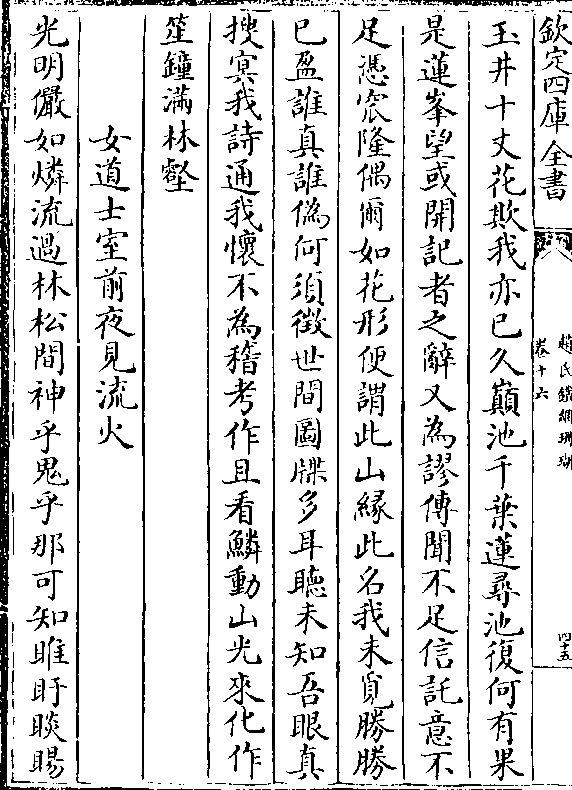 欽定四庫全書
趙氏鐵網珊瑚
卷十六
四十五
玉井十丈花欺我亦已久巔池千葉蓮尋池復何有果
是蓮峯望或開記者之辭又為謬傳聞不足信託意不
足憑窊隆偶爾如花形便謂此山緣此名我未覓勝勝
已盈誰真誰偽何須徵世間圖牒多耳聽未知吾眼真
搜冥我詩通我懷不為稽考作且看鱗動山光來化作
笙鐘滿林壑
女道士室前夜見流火
光明儼如燐流過林松間神乎鬼乎那可知睢盱睒暘